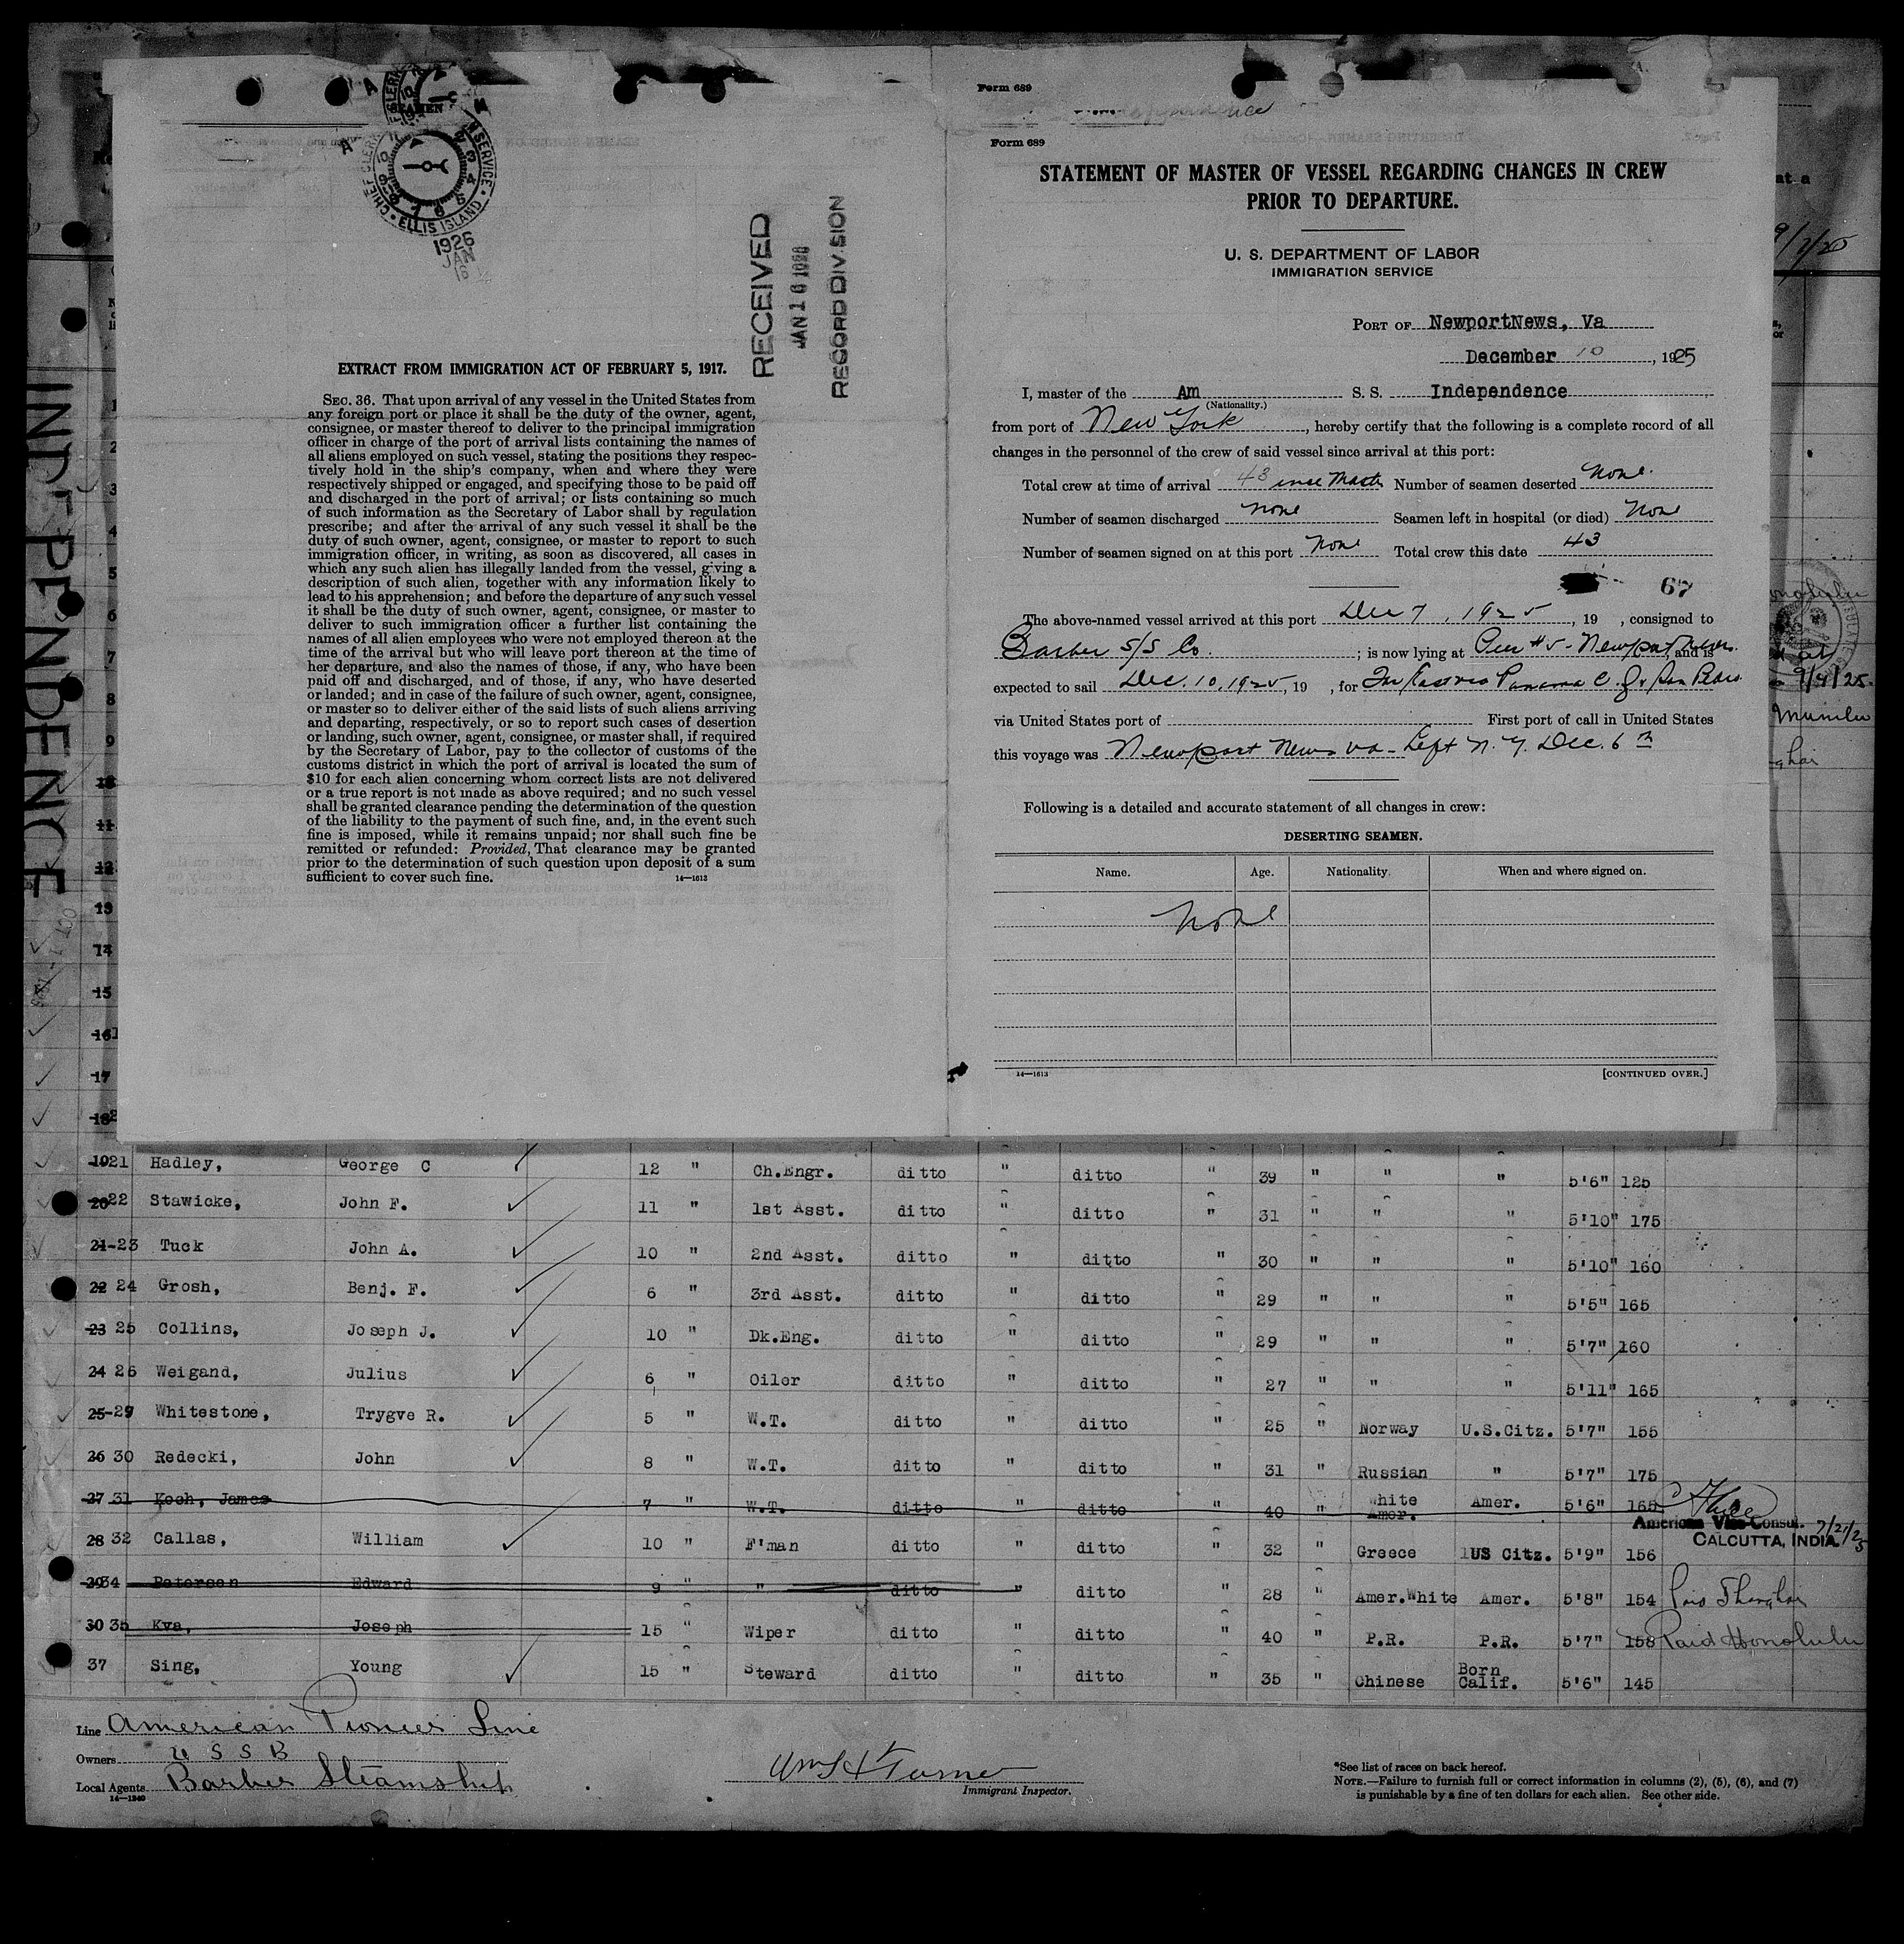 INDEPENDENCE
SEAMEN
CHIEF CLERK
N SERVICE
ELLIS ISLAND
1926
JAN
16
RECEIVED
JAN 16 1926
RECORD DIVISION
EXTRACT FROM IMMIGRATION ACT OF FEBRUARY 5, 1917.
SEC. 36. That upon arrival of any vessel in the United States from
any foreign port or place it shall be the duty of the owner, agent,
consignee, or master thereof to deliver to the principal immigration
officer in charge of the port of arrival lists containing the names of
all aliens employed on such vessel, stating the positions they respec-
tively hold in the ship's company, when and where they were
respectively shipped or engaged, and specifying those to be paid off
and discharged in the port of arrival; or lists containing so much
of such information as the Secretary of Labor shall by regulation
prescribe; and after the arrival of any such vessel it shall be the
duty of such owner, agent, consignee, or master to report to such
immigration officer, in writing, as soon as discovered, all cases in
which any such alien has illegally landed from the vessel, giving a
description of such alien, together with any information likely to
lead to his apprehension; and before the departure of any such vessel
it shall be the duty of such owner, agent, consignee, or master to
deliver to such immigration officer a further list containing the
names of all alien employees who were not employed thereon at the
time of the arrival but who will leave port thereon at the time of
her departure, and also the names of those, if any, who have been
paid off and discharged, and of those, if any, who have deserted
or landed; and in case of the failure of such owner, agent, consignee,
or master so to deliver either of the said lists of such aliens arriving
and departing, respectively, or so to report such cases of desertion
or landing, such owner, agent, consignee, or master shall, if required
by the Secretary of Labor, pay to the collector of customs of the
customs district in which the port of arrival is located the sum of
$10 for each alien concerning whom correct lists are not delivered
or a true report is not made as above required; and no such vessel
shall be granted clearance pending the determination of the question
of the liability to the payment of such fine, and, in the event such
fine is imposed, while it remains unpaid; nor shall such fine be
remitted or refunded: Provided, That clearance may be granted
prior to the determination of such question upon deposit of a sum
sufficient to cover such fine. 14—1613
Form 689
Form 689
STATEMENT OF MASTER OF VESSEL REGARDING CHANGES IN CREW
PRIOR TO DEPARTURE.
U. S. DEPARTMENT OF LABOR
IMMIGRATION SERVICE
PORT OF NewportNews, Va
December 10, 1925
I, master of the Am S. S. Independence
(Nationality.)
from port of New York, hereby certify that the following is a complete record of all
changes in the personnel of the crew of said vessel since arrival at this port:
Total crew at time of arrival 43 Number of seamen deserted None.
Number of seamen discharged None Seamen left in hospital (or died) None
Number of seamen signed on at this port None Total crew this date 43
67
The above-named vessel arrived at this port Dec 7, 1925, 19 , consigned to
Barber S/S Co. ; is now lying at Pier #5 - Newport News, and is
expected to sail Dec. 10, 1925, 19 , for
via United States port of First port of call in United States
this voyage was Newport News Va - Left N. Y. Dec. 6th
Following is a detailed and accurate statement of all changes in crew:
DESERTING SEAMEN.
Name. Age. Nationality. When and where signed on.
None
14—1613 [CONTINUED OVER.]
9/9/25.
19 21 Hadley, George C 12 " Ch.Engr. ditto " ditto " 39 " " " 5'6" 125
20 22 Stawicke, John F. 11 " 1st Asst. ditto " ditto " 31 " " " 5'10" 175
21-23 Tuck John A. 10 " 2nd Asst. ditto " ditto " 30 " " " 5'10" 160
22 24 Grosh, Benj. F. 6 " 3rd Asst. ditto " ditto " 29 " " " 5'5" 165
23 25 Collins, Joseph J. 10 " Dk.Eng. ditto " ditto " 29 " " " 5'7" 160
24 26 Weigand, Julius 6 " Oiler ditto " ditto " 27 " " " 5'11" 165
25-29 Whitestone, Trygve R. 5 " W.T. ditto " ditto " 25 " Norway U.S.Citz. 5'7" 155
26 30 Redecki, John 8 " W.T. ditto " ditto " 31 " Russian " 5'7" 175
27 31 Koch, James 7 " W.T. ditto " ditto " 40 " White Amer. Amer. 5'6" 165
American Vice Consul. 7/21/25
CALCUTTA, INDIA.
28 32 Callas, William 10 " F'man ditto " ditto " 32 " Greece US Citz. 5'9" 156
29 34 Petersen Edward 9 " " ditto " ditto " 28 " Amer.White Amer. 5'8" 154 Shanghai
30 35 Kva, Joseph 15 " Wiper ditto " ditto " 40 " P.R. P.R. 5'7" 158 Paid Honolulu
37 Sing, Young 15 " Steward ditto " ditto " 35 " Chinese Born Calif. 5'6" 145
Line American Pioneer Line
Owners U S S B
Local Agents Barber Steamship
14—1240
Immigrant Inspector.
*See list of races on back hereof.
NOTE.—Failure to furnish full or correct information in columns (2), (5), (6), and (7)
is punishable by a fine of ten dollars for each alien. See other side.